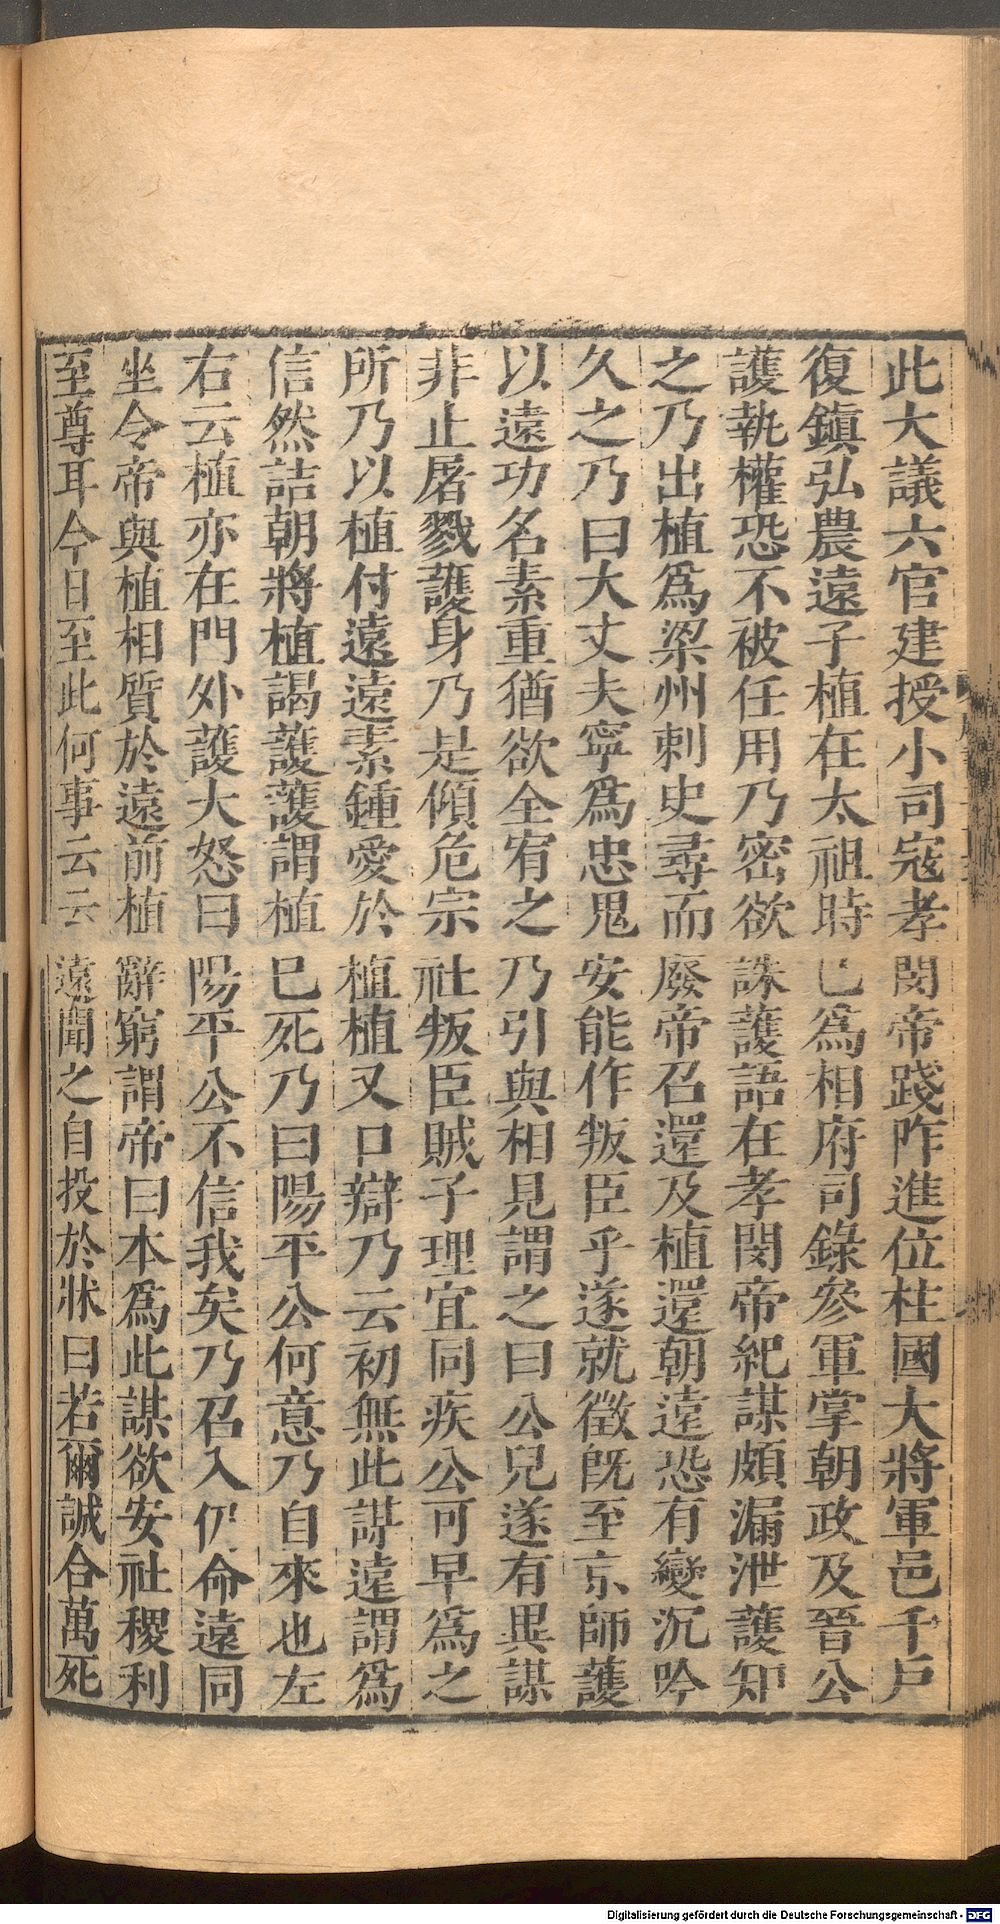 此大議六官建授小司寇孝閔帝踐阼進位柱國大將軍邑千戶
復鎮弘農遠子植在太祖時已為相府司錄參軍掌朝政及晉公
護執權恐不被任用乃密欲誅護語在孝閔帝紀謀頗漏泄護知
之乃出植為梁州刺史尋而廢帝召遠及植還朝遠恐有變沉吟
久之乃曰大丈夫寧為忠鬼安能作叛臣乎遂就徵既至京師護
以遠功名素重猶欲全宥之乃引與相見謂之曰公兒遂有異謀
非止屠戮護身乃是傾危宗社叛臣賊子理宜同疾公可早為之
所乃以植付遠遠素鍾愛於植植又口辯乃云初無此謀遠謂為
信然詰朝將植謁護護謂植巳死乃曰陽平公何意乃自來也左
右云植亦在門外護大怒曰陽平公不信我矣乃召入仍命遠同
坐令帝與植相質於遠前植辭窮謂帝曰本為此謀欲安社稷利
至尊耳今日至此何事云云遠聞之自投於牀曰若爾誠合萬死
Digitalisierung gefördert durch die Deutsche Forschungsgemeinschaft - DFG